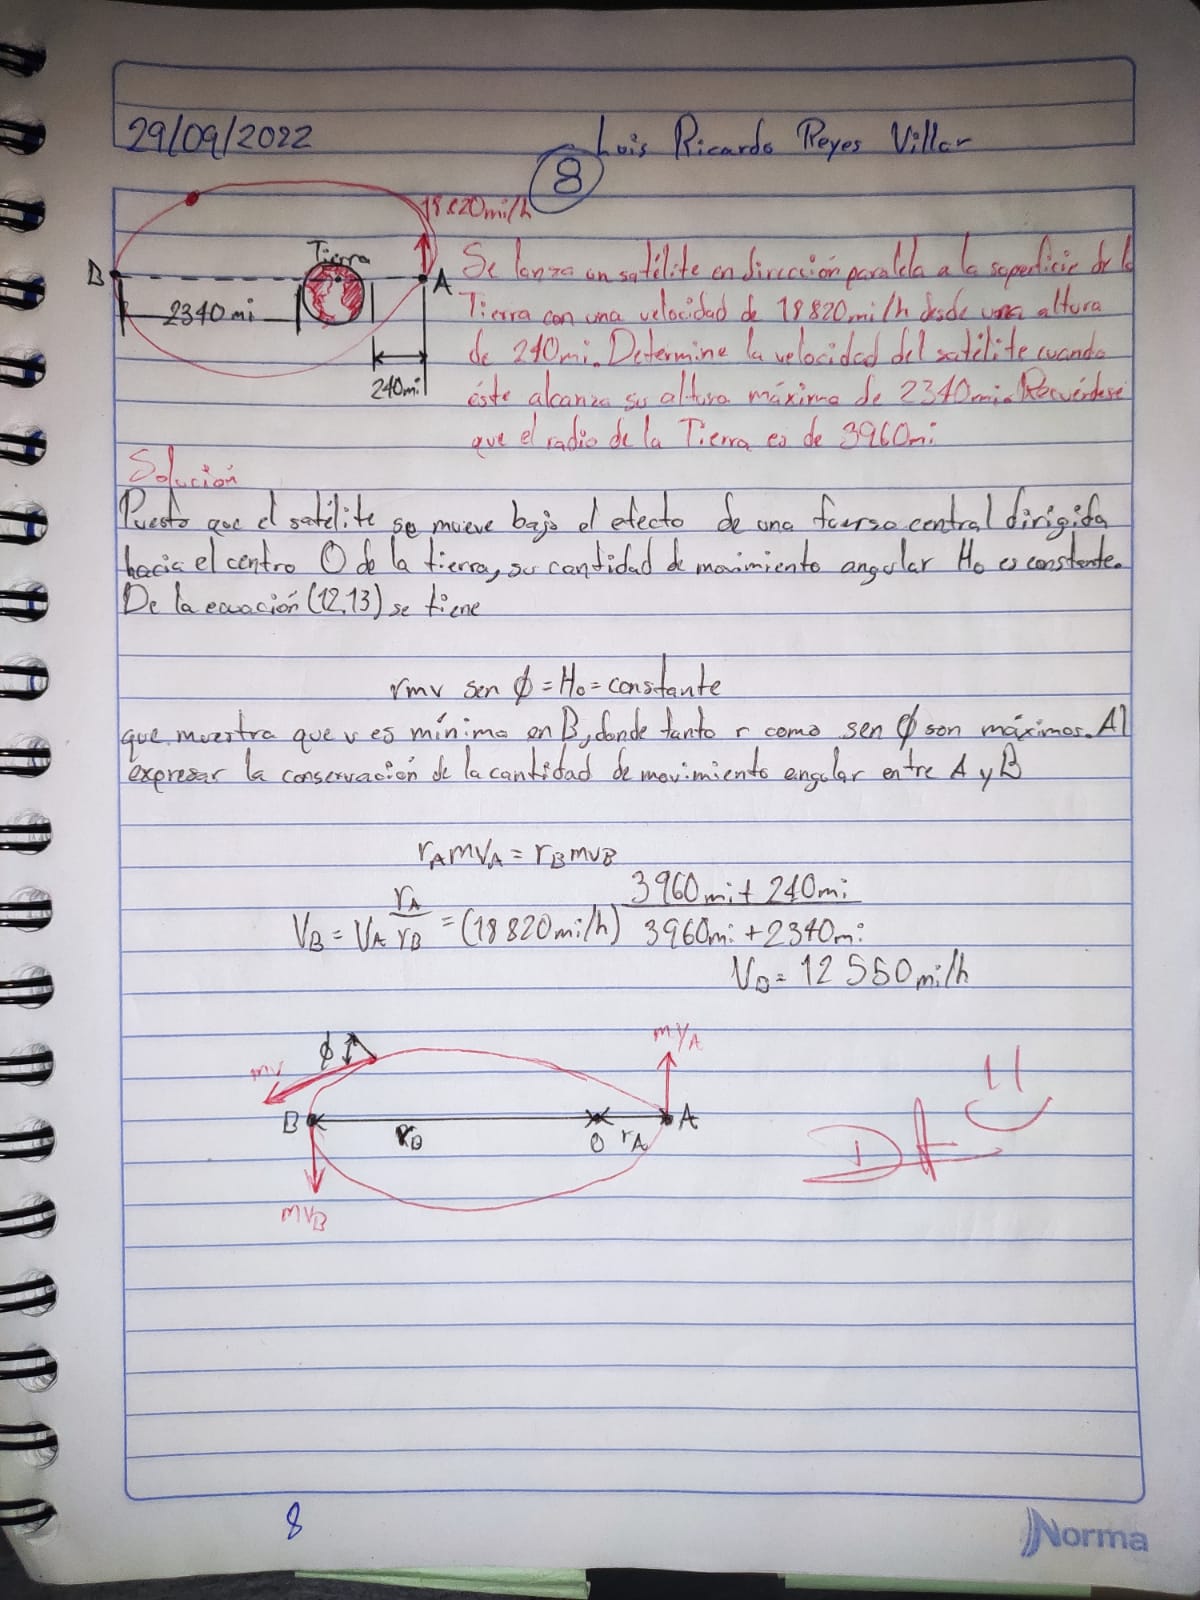 29/09/2022
Luis Ricardo Reyes Villar
8
18820mi/h
Tierra
B
A
2340 mi
240mi
Se lanza un satélite en dirección paralela a la superficie de la
Tierra con una velocidad de 18820mi/h desde una altura
de 240mi. Determine la velocidad del satélite cuando
éste alcanza su altura máxima de 2340mi. Recuérdese
que el radio de la Tierra es de 3960mi
Solución
Puesto que el satélite se mueve bajo el efecto de una fuerza central dirigida
hacia el centro O de la tierra, su cantidad de movimiento angular Ho es constante.
De la ecuación (12,13) se tiene
rmv sen ϕ = Ho = constante
que muestra que v es mínima en B, donde tanto r como sen ϕ son máximos. Al
expresar la conservación de la cantidad de movimiento angular entre A y B
rAmVA = rBmvB
VB = VA rA/rB = (18820mi/h) 3960mi + 240mi / 3960mi + 2340mi
VB = 12550mi/h
ϕ
mv
mVA
B
A
rB
O
rA
mVB
8
Norma